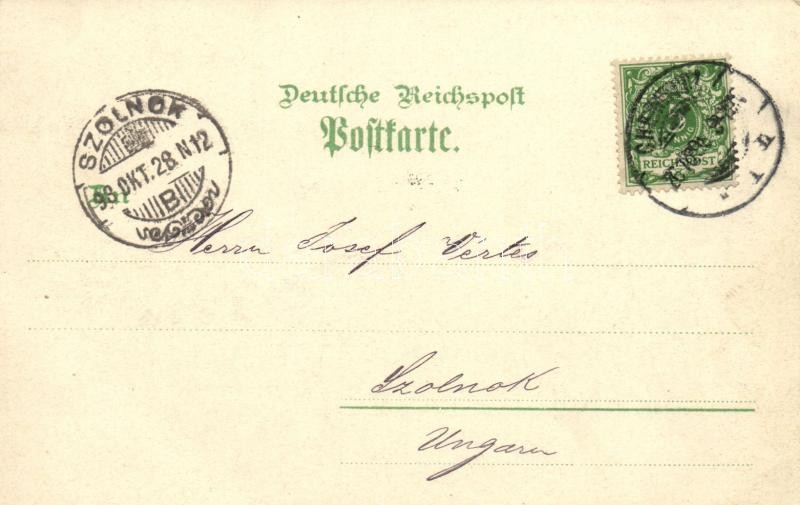 Deutsche Reichspost
Postkarte.
SZOLNOK
98 OKT. 28. N12
B
An
REICHSPOST
Herrn Josef Vértes
Szolnok
Ungarn